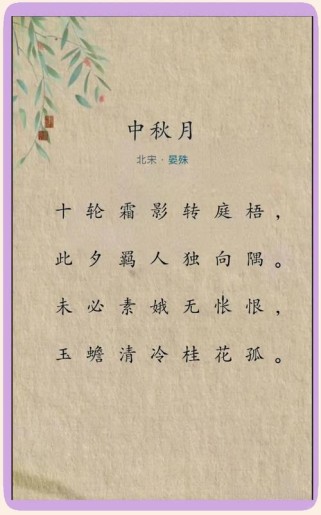 中秋月
北宋·晏殊
十轮霜影转庭梧，
此夕羁人独向隅。
未必素娥无怅恨，
玉蟾清冷桂花孤。